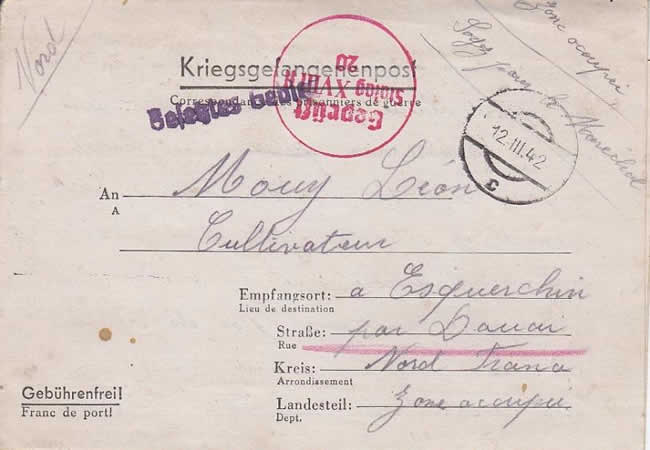 Nord
Zone occupée
Kriegsgefangenenpost
Correspondance des prisonniers de guerre
Geprüft
Stalag XVIII
20
12.III.42
An Mouy Léon
A
Cultivateur
Empfangsort: a Esquerchin
Lieu de destination
Straße: par Douai
Rue
Kreis: Nord France
Arrondissement
Landesteil: Zone occupée
Dept.
Gebührenfrei!
Franc de port!